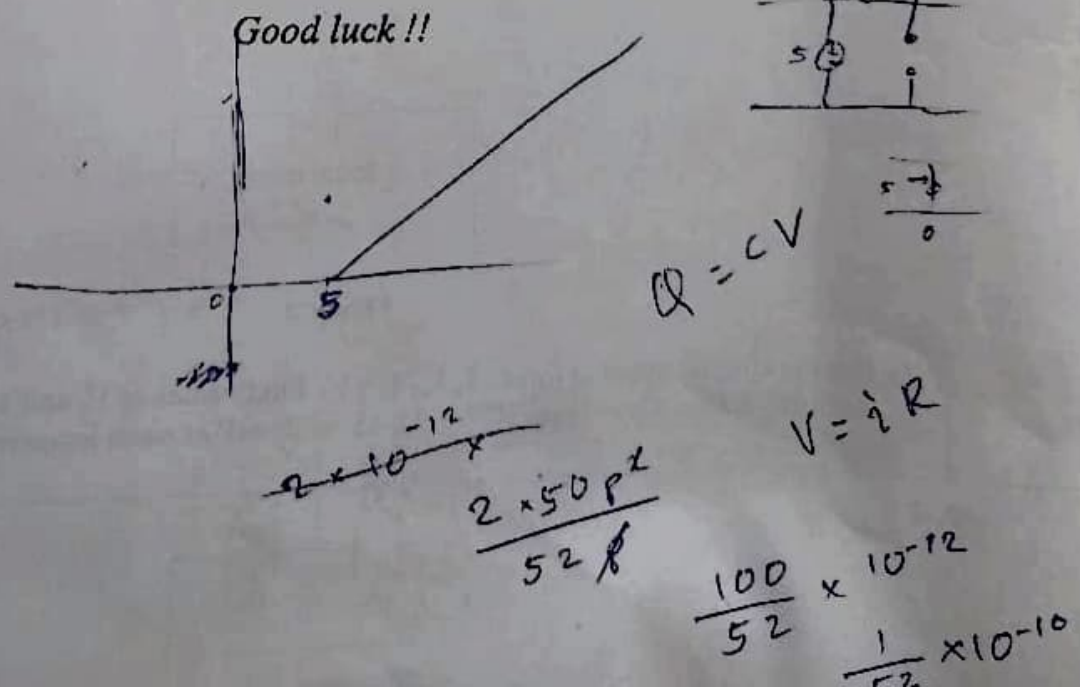 Good luck !!
5
5
0
0
5
Q = cV
V = iR
2 × 10^-12 ×
2 × 50 p^2
52 p
100
52
× 10^-12
1
× 10^-10